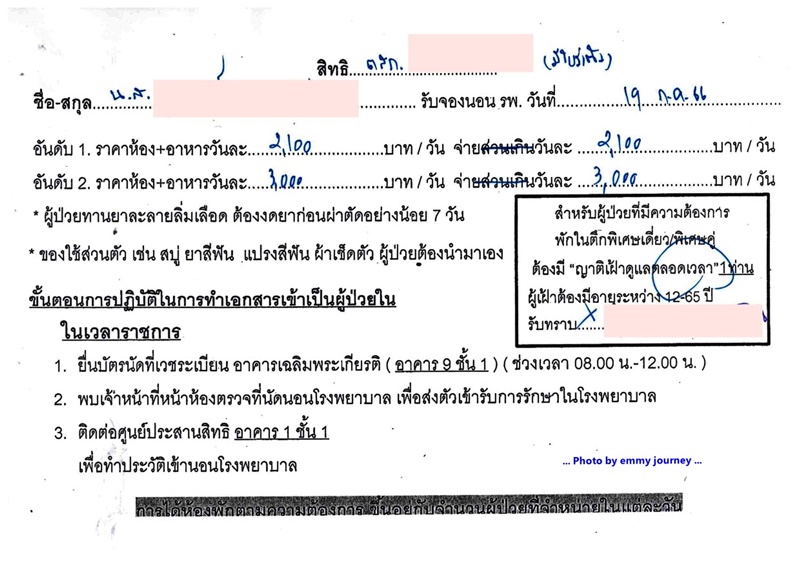 สิทธิ ตสก. (มีใบส่งตัว)
ชื่อ-สกุล....น.ส. ............ รับจองนอน รพ. วันที่............19 ก.ค. 66............
อันดับ 1. ราคาห้อง+อาหารวันละ....2,100............บาท / วัน จ่ายส่วนเกินวันละ ....2,100............บาท / วัน
อันดับ 2. ราคาห้อง+อาหารวันละ....3,000............บาท / วัน จ่ายส่วนเกินวันละ ....3,000............บาท / วัน
* ผู้ป่วยทานยาละลายลิ่มเลือด ต้องงดยาก่อนผ่าตัดอย่างน้อย 7 วัน
* ของใช้ส่วนตัว เช่น สบู่ ยาสีฟัน แปรงสีฟัน ผ้าเช็ดตัว ผู้ป่วยต้องนำมาเอง
สำหรับผู้ป่วยที่มีความต้องการ
พักในตึกพิเศษเดี่ยว/พิเศษคู่
ต้องมี "ญาติเฝ้าดูแลตลอดเวลา" 1ท่าน
ผู้เฝ้าต้องมีอายุระหว่าง 12-65 ปี
รับทราบ...X
ขั้นตอนการปฏิบัติในการทำเอกสารเข้าเป็นผู้ป่วยใน
ในเวลาราชการ
1. ยื่นบัตรนัดที่เวชระเบียน อาคารเฉลิมพระเกียรติ ( อาคาร 9 ชั้น 1 ) ( ช่วงเวลา 08.00 น.-12.00 น. )
2. พบเจ้าหน้าที่หน้าห้องตรวจที่นัดนอนโรงพยาบาล เพื่อส่งตัวเข้ารับการรักษาในโรงพยาบาล
3. ติดต่อศูนย์ประสานสิทธิ อาคาร 1 ชั้น 1
เพื่อทำประวัติเข้านอนโรงพยาบาล
... Photo by emmy journey ...
การได้ห้องพักตามความต้องการ ขึ้นอยู่กับจำนวนผู้ป่วยที่จำหน่ายในแต่ละวัน